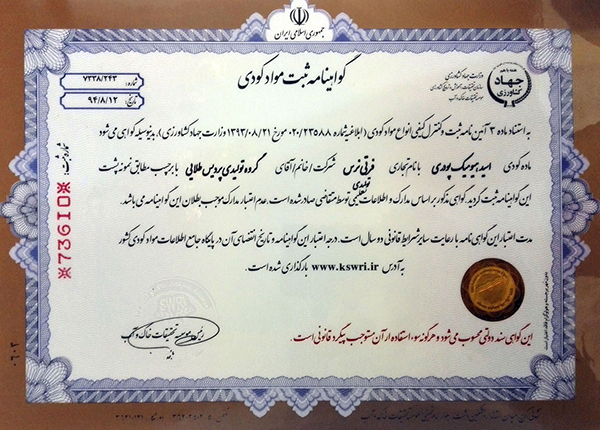 جمهوری اسلامی ایران
وزارت جهاد کشاورزی
جهاد
کشاورزی
گواهینامه ثبت مواد کودی
شماره: ۷۳۳۸/۲۴۳
تاریخ: ۹۴/۸/۱۲
به استناد ماده ۳ آئین نامه ثبت و کنترل کیفی انواع مواد کودی (ابلاغیه شماره ۰۲۰/۲۳۵۸۸ مورخ ۱۳۹۳/۰۸/۲۱ وزارت جهاد کشاورزی)، بدینوسیله گواهی می شود
ماده کودی اسید هیومیک پودری با نام تجاری فرتی نرس شرکت/خانم/آقای گروه تولیدی پردیس طلایی با برچسب مطابق نمونه پشت
این گواهینامه ثبت گردید. گواهی مذکور براساس مدارک و اطلاعات تولیدی توسط متقاضی صادر شده است، عدم اعتبار مدارک موجب بطلان این گواهینامه می باشد.
مدت اعتبار این گواهی نامه با رعایت سایر شرایط قانونی دو سال است. درجه اعتبار این گواهینامه و تاریخ انقضای آن در پایگاه جامع اطلاعات مواد کودی کشور
به آدرس www.kswri.ir بارگذاری شده است.
رئیس موسسه تحقیقات خاک و آب
این گواهی سند دولتی محسوب می شود و هرگونه سوء استفاده از آن مستوجب پیگرد قانونی است.
شماره ثبت:
※73610※
SWRI
۰۶۰۲